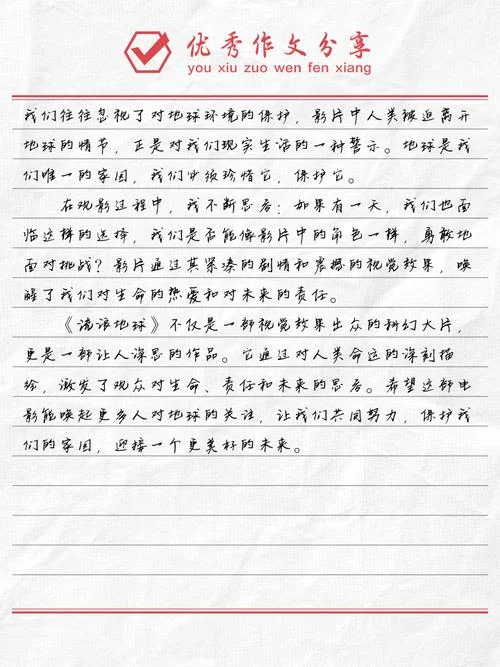 优秀作文分享
you xiu zuo wen fen xiang
我们往往忽视了对地球环境的保护，影片中人类被迫离开
地球的情节，正是对我们现实生活的一种警示。地球是我
们唯一的家园，我们必须珍惜它，保护它。
在观影过程中，我不断思考：如果有一天，我们也面
临这样的选择，我们是否能像影片中的角色一样，勇敢地
面对挑战？影片通过其紧凑的剧情和震撼的视觉效果，唤
醒了我们对生命的热爱和对未来的责任。
《流浪地球》不仅是一部视觉效果出众的科幻大片，
更是一部让人深思的作品。它通过对人类命运的深刻描
绘，激发了观众对生命、责任和未来的思考。希望这部电
影能唤起更多人对地球的关注，让我们共同努力，保护我
们的家园，迎接一个更美好的未来。